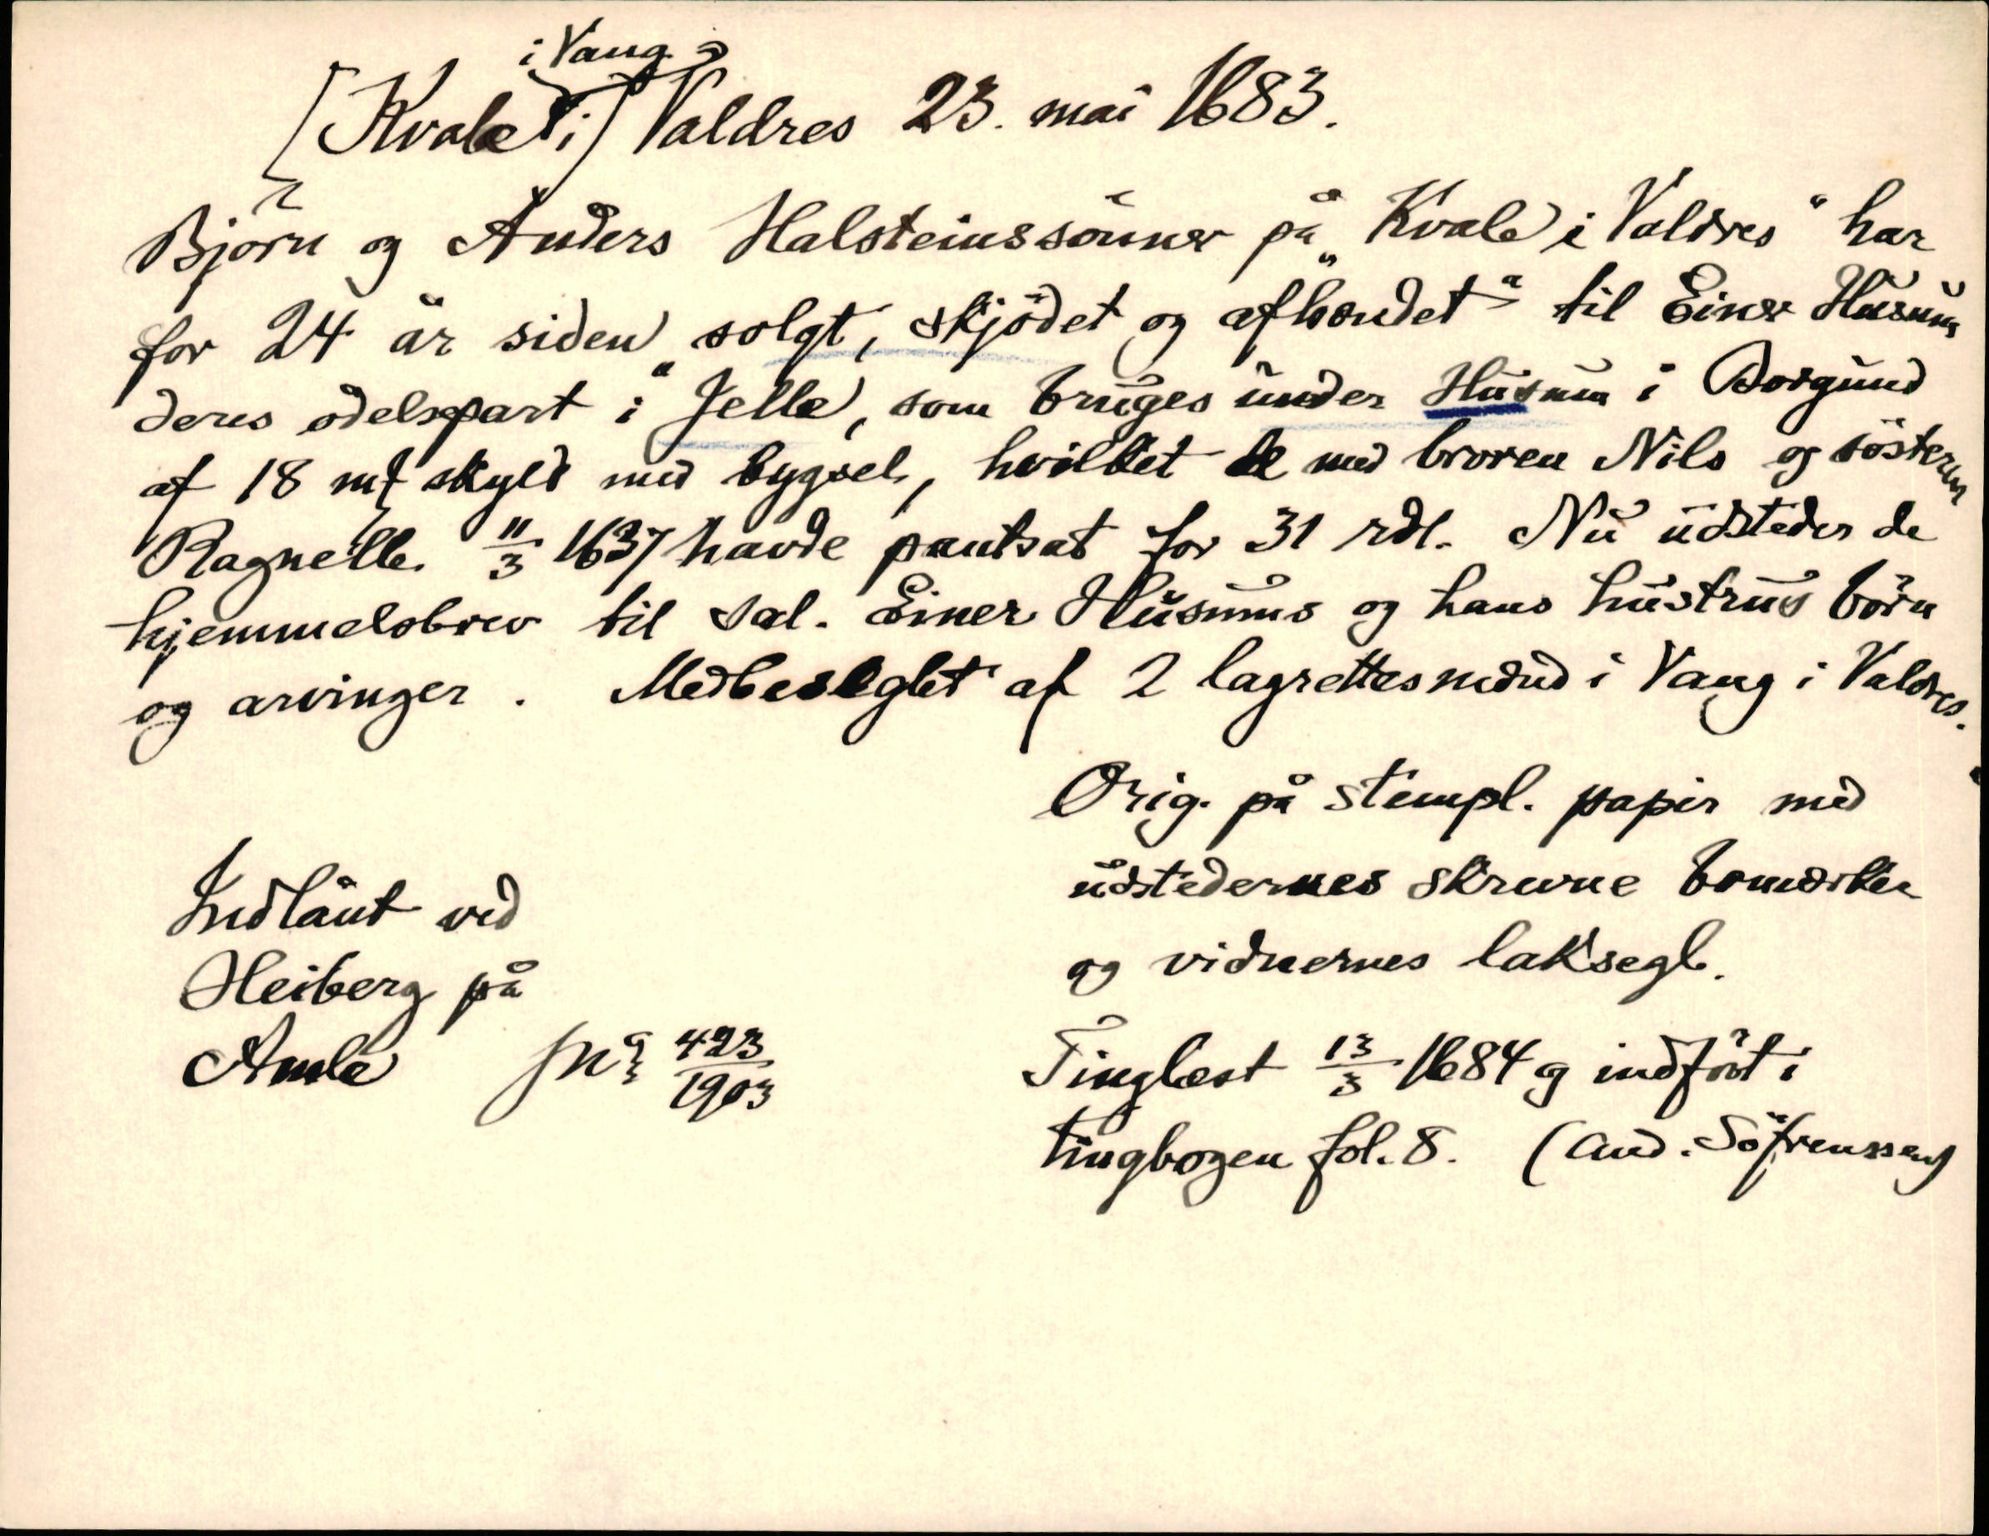 i Vang?
[Kvale i] Valdres 23. mai 1683.
Björn og Anders Halsteinssönner på „Kvale i Valdres“ har
for 24 år siden „solgt, skjödet og afhændet“ til Einer Husum
deres odelspart i Jelle, som bruges under Husum i Borgund
af 18 mk skyld med bygsel, hvilket de med broren Nils og søsteren
Ragnelle 11/3 1637 havde pantsat for 31 rdl. Nu udsteder de
hjemmelsbrev til sal. Einer Husums og hans hustrus börn
og arvinger. Medbeseglet af 2 lagrettesmænd i Vang i Valdres.
Orig. på stempl. papir med
udstedernes skrevne bomærker
og vidnernes laksegl.
Indlånt ved
Heiberg på
Amle 423/1903
Tinglæst 13/3 1684 og indfört i
tingbogen fol. 8. (And. Söfrenssen)